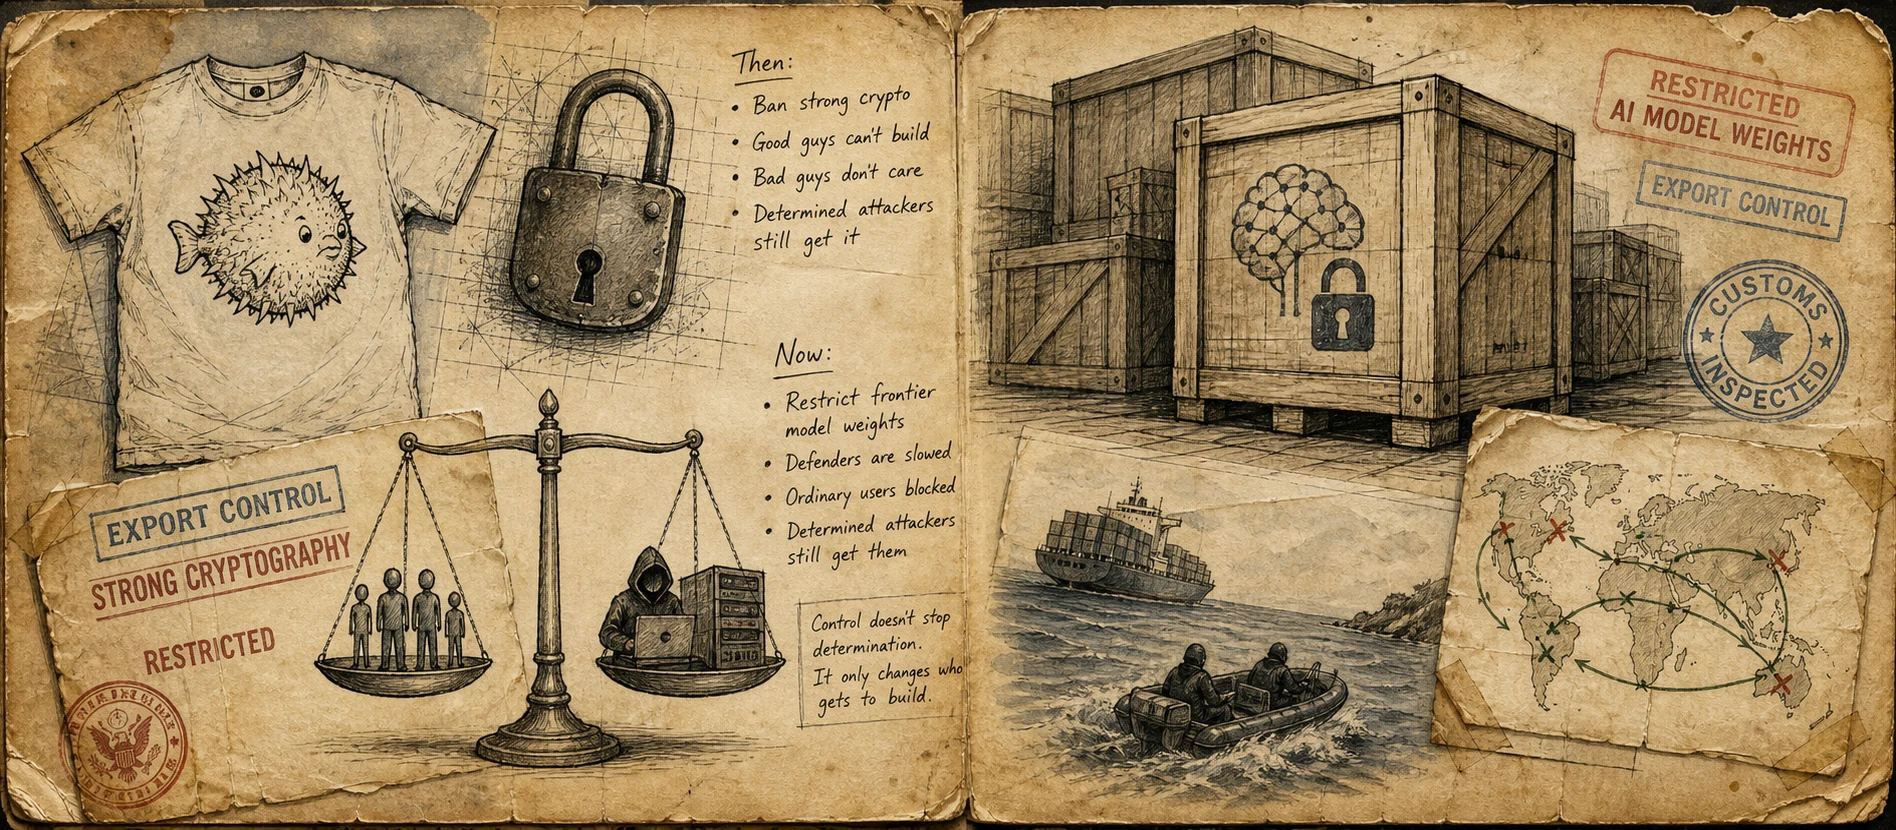 Then:
• Ban strong crypto
• Good guys can't build
• Bad guys don't care
• Determined attackers
still get it
Now:
• Restrict frontier
model weights
• Defenders are slowed
• Ordinary users blocked
• Determined attackers
still get them
Control doesn't stop
determination.
It only changes who
gets to build.
EXPORT CONTROL
STRONG CRYPTOGRAPHY
RESTRICTED
RESTRICTED
AI MODEL WEIGHTS
EXPORT CONTROL
CUSTOMS
INSPECTED